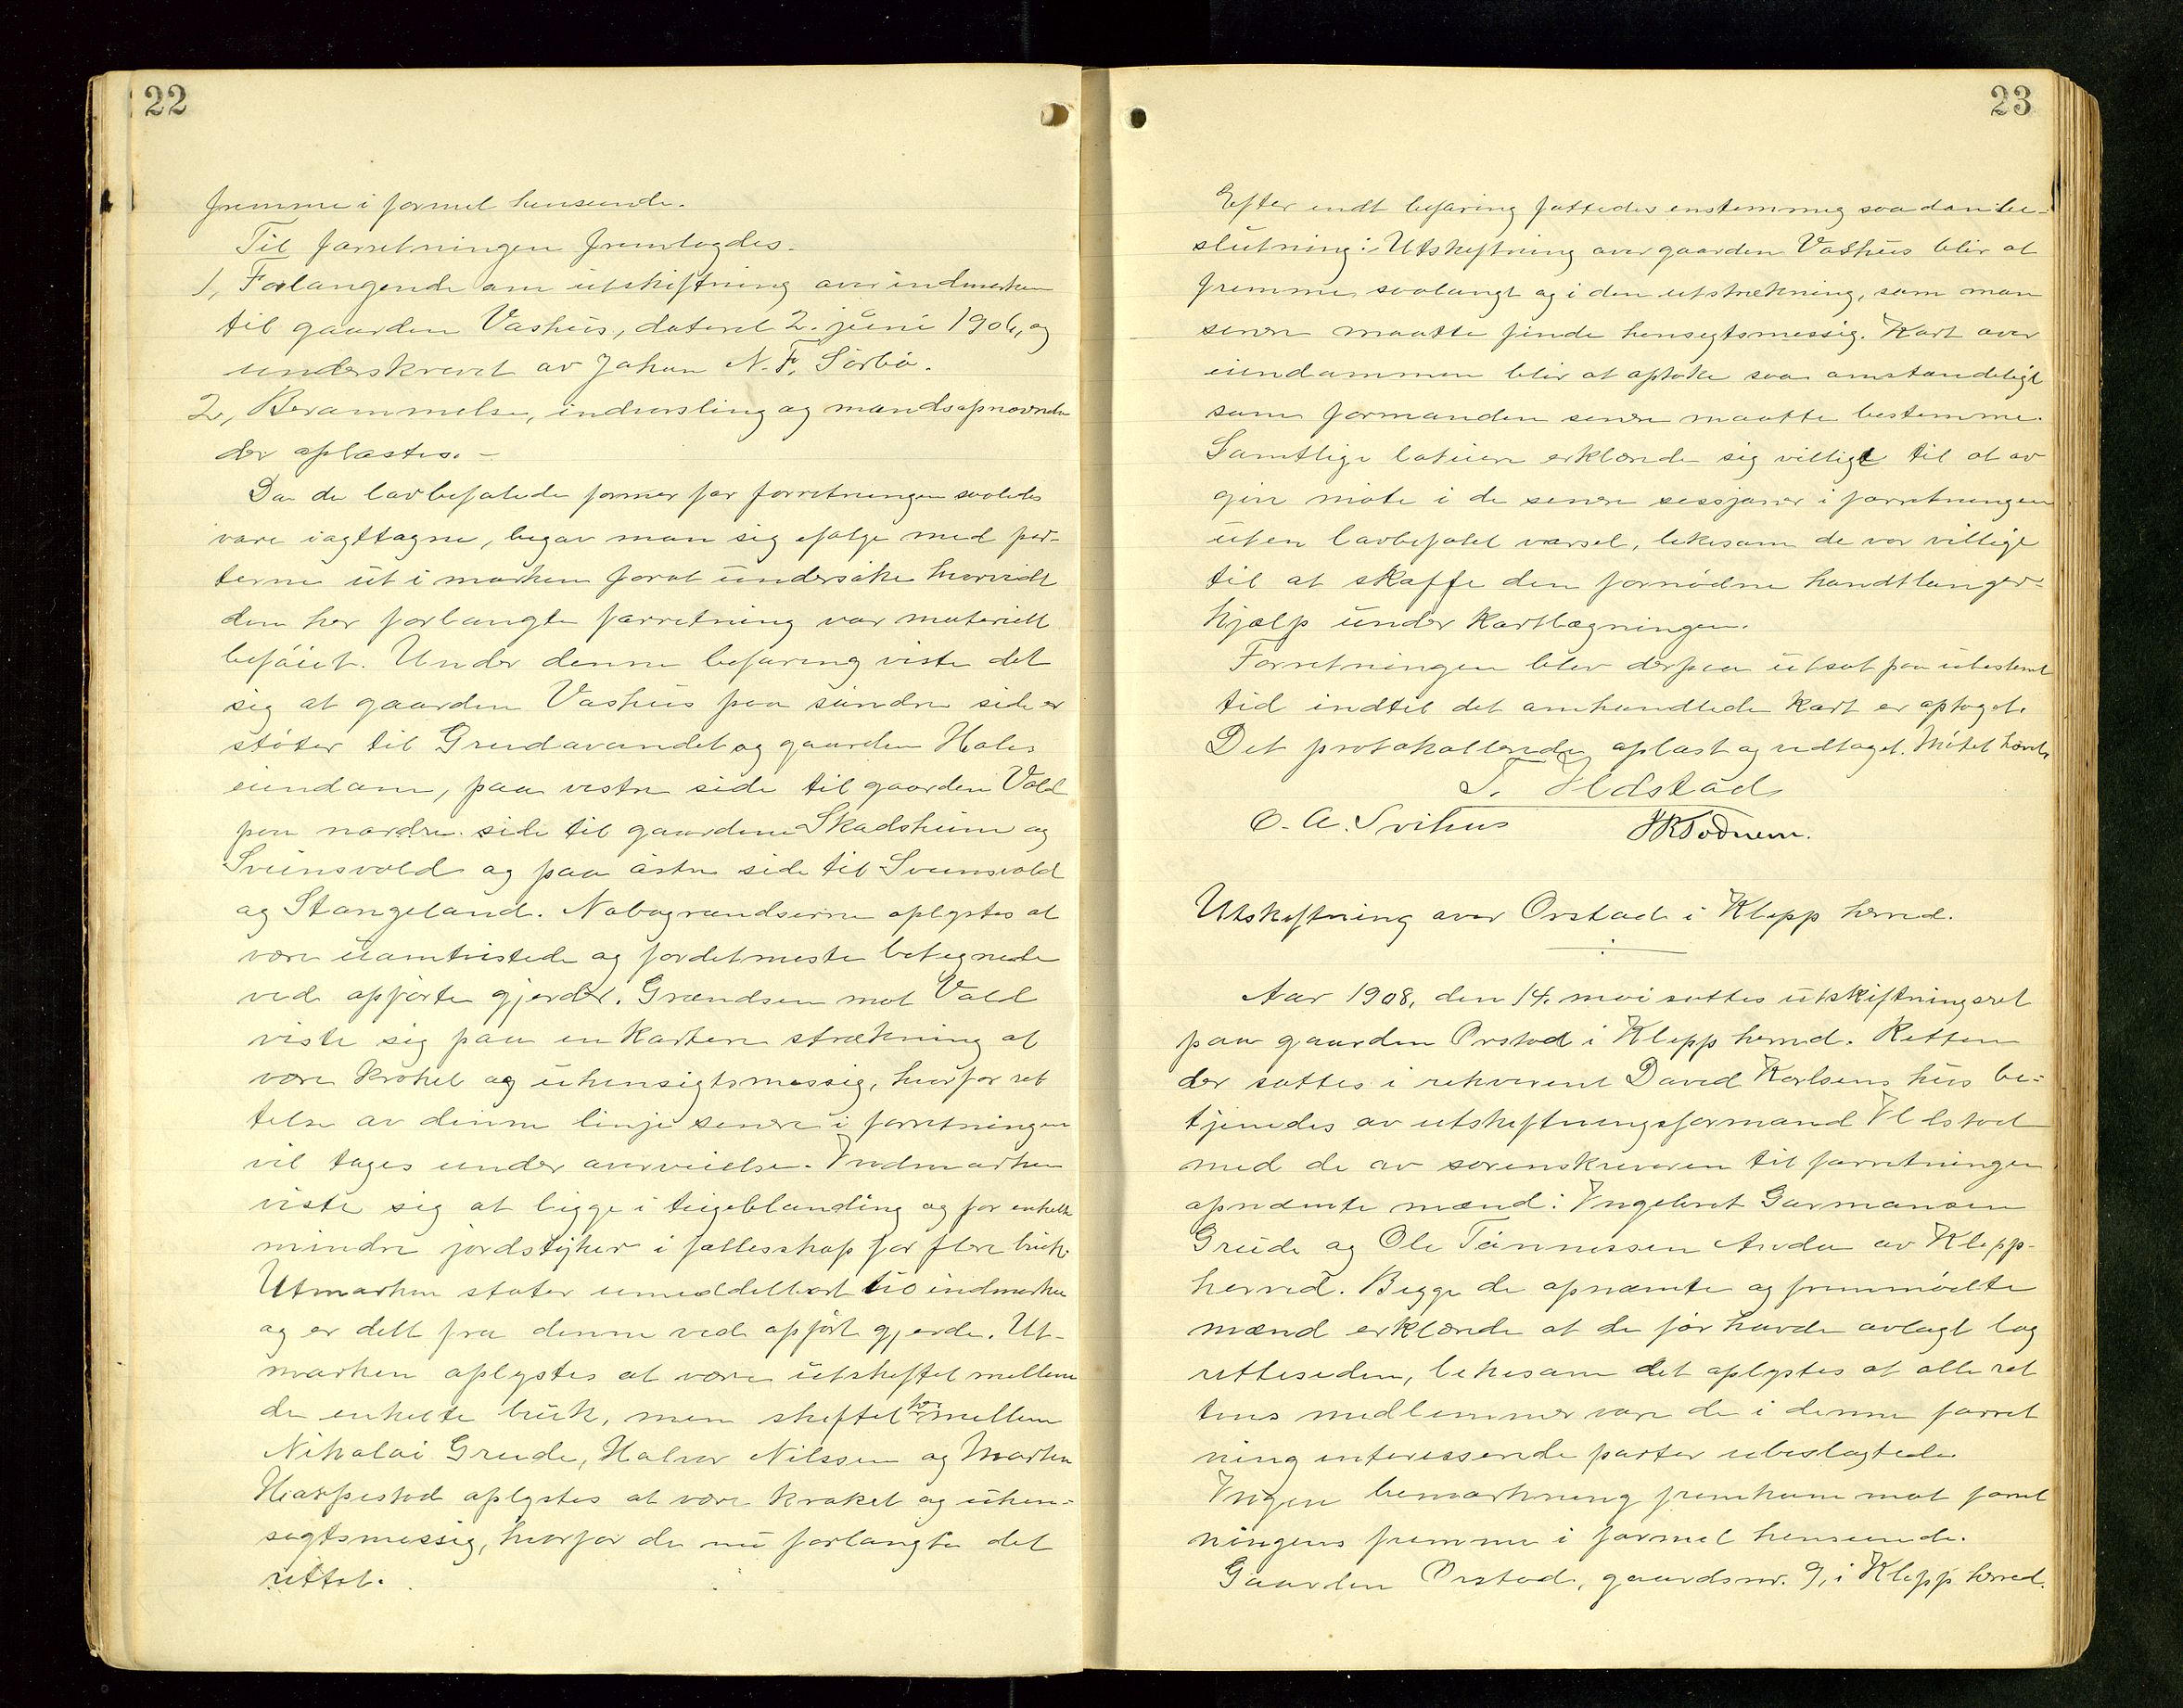 22
fremme i formel henseende.
Til forretningen fremlagdes.
1, Forlangende om utskiftning over indmarken
til gaarden Vashus, dateret 2. juni 1906, og
underskrevet av Johan N. F. Sörbö.
2, Berammelse, indvarsling og mandsopnævnelse
der oplæstes. -
Da de lovbefalede former for forretningen saaledes
vare iagttagne, begav man sig ifølge med par-
terne ut i marken forat undersøke hvorvidt
den her forlangte forretning var materielt
beføiet. Under denne befaring viste det
sig at gaarden Vashus paa søndre side er
støter til Grudavandet og gaarden Hales
eiendom, paa vestre side til gaarden Vold
paa nordre side til gaardene Skadsheim og
Sveinsvold og paa østre side til Sveinsvold
og Stangeland. Nabogrændserne oplystes at
være uomtvistede og fordetmeste betegnede
ved opførte gjerder. Grændsen mot Vold
viste sig paa en kortere strækning at
være kroket og uhensigtsmessig, hvorfor ret
telse av denne linje senere i forretningen
vil tages under overveielse. Indmarken
viste sig at ligge i teigeblanding og for enkelte
mindre jordstyker i fællesskap for flere bruk.
Utmarken støter umiddelbart til indmarken
og er delt fra denne ved opført gjerde. Ut-
marken oplystes at være utskiftet mellem
de enkelte bruk, men skiftet her mellem
Nikolai Grude, Halvor Nilssen og Morten
Harpestad oplystes at være kroket og uhen-
sigtsmessig, hvorfor de nu forlangte det
rettet.
23
Efter endt befaring fattedes enstemmig saadan be-
slutning: Utskiftning over gaarden Vashus blir at
fremme saalangt og i den utstrækning, som man
senere maatte finde hensigtsmessig. Kart over
eiendommen blir at optake saa omstændeligt
som formanden senere maatte bestemme.
Samtlige loteiere erklærede sig villige til at av
give møte i de senere sessjoner i forretningen
uten lovbefalet varsel, likesom de var villige
til at skaffe den fornødne handtlanger-
hjælp under kartlægningen.
Forretningen blev derpaa utsat paa ubestemt
tid indtil det omhandlede kart er optaget.
Det protokollerede oplæst og vedtaget. Møtet hævet.
T. Ildstad
O. A. Svihus JRTodnem.
Utskiftning over Orstad i Klepp herred.
Aar 1908, den 14. mai sattes utskiftningsret
paa gaarden Orstad i Klepp herred. Retten
der sattes i rekvirent David Karlsens hus be-
tjenedes av utskiftningsformand Ildstad
med de av sorenskriveren til forretningen
opnævnte mænd: Ingebret Garmansen
Grude og Ole Tönnessen Anda av Klepp-
herred. Begge de opnævnte og fremmødte
mænd erklærede at de før havde avlagt lag
retteseden, likesom det oplystes at alle ret
tens medlemmer vare de i denne forret
ning interesserede parter ubeslægtede
Ingen bemærkning fremkom mot forret
ningens fremme i formel henseende.
Gaarden Orstad, gaardsnr. 9, i Klepp herred.